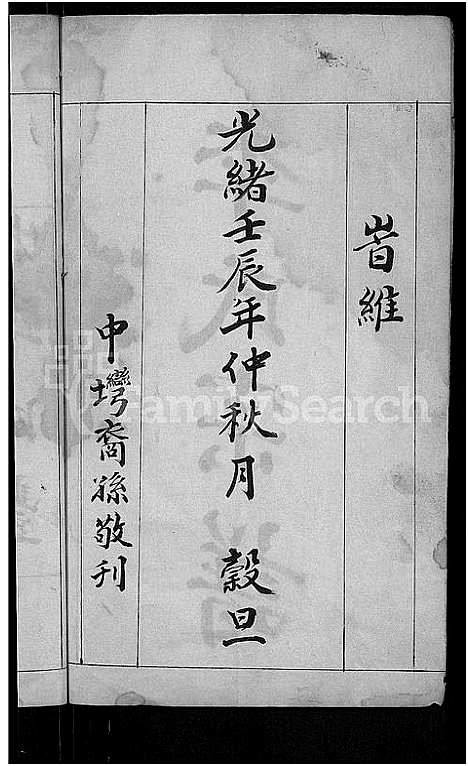 旹維
光緒壬辰年仲秋月 榖旦
中塆裔孫敬刊
FamilySearch